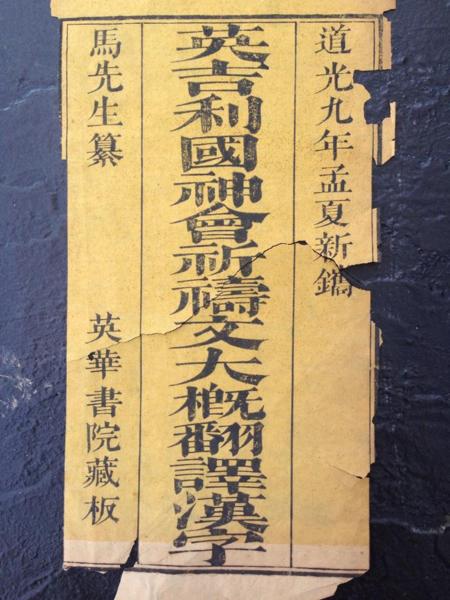 道光九年孟夏新鐫
英吉利國神會祈禱文大概翻譯漢字
馬先生纂
英華書院藏板